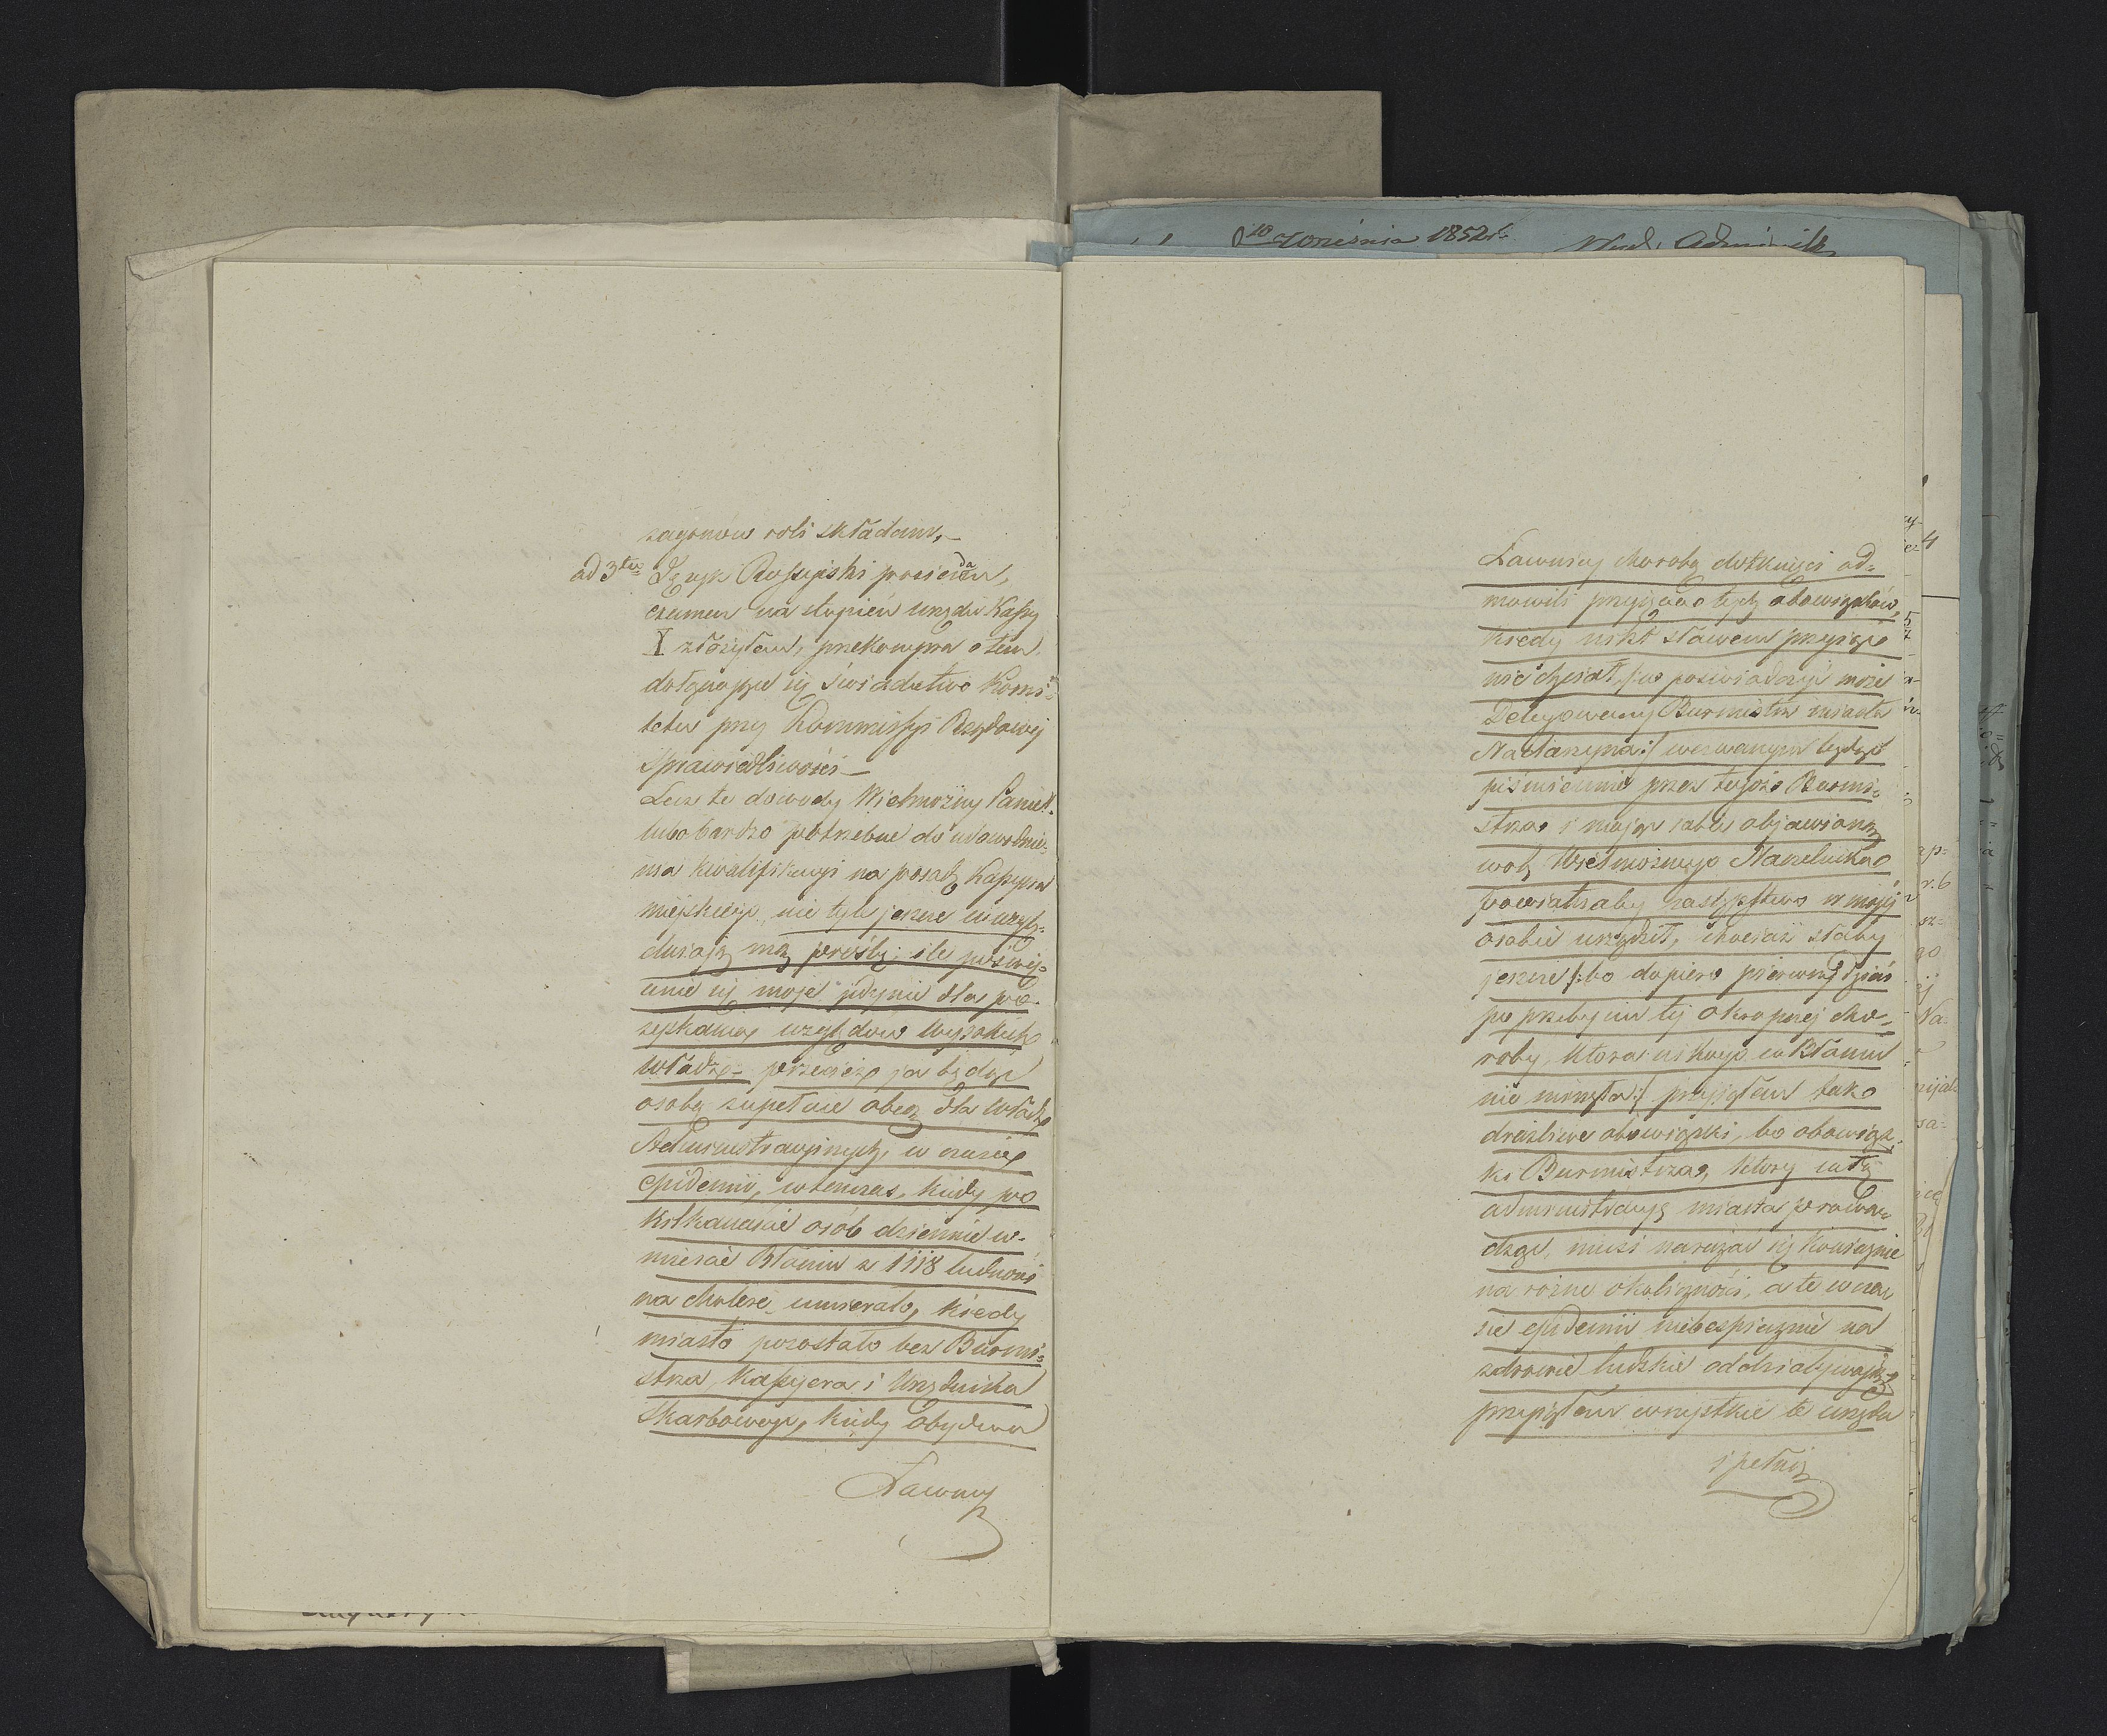 zagonów roli składam,_
ad 3tio Język Rossyjski posiadam,
examen na stopień urzędu Kassy
X złożyłem, przekonywa o tem
dołączające się świadectwo Komi=
tetu przy Kommissyi Rządowej
Sprawiedliwości_
Lecz te dowody Wielmożny Panie!
lubo bardzo potrzebne do udowodnie=
nia kwalifikacyi na posadę Kassyera
miejskiego, nie tyle jeszcze uwzglę=
dniają mą prośbę; ile poświę=
cenie się moje jedynie dla po=
zyskania względów Wysokich
Władz_ przecież ja będąc
osobą zupełnie obcą dla Władz
Administracyjnych, w czasie
epidemii, wtenczas, kiedy po
kilkanaście osób dziennie w=
mieście Błoniu z 1118 ludności
na cholerę umierało, kiedy
miasto pozostało bez Burmi=
strza, Kassyera i Urzędnika
Skarbowego, kiedy obydwa
Ławnicy
10 Września 1852 r.
Ławnicy chorobą dotknięci od=
mówili przyjęcia tych obowiązków,
kiedy nikt słowem przyjąć
nie chciał, /:co poświadczyć może
Delegowany Burmistrz miasta
Nadarzyna:/ wezwanym będąc
piśmiennie przez tegoż Burmi=
strza i mając sobie objawioną
wolę Wielmożnego Naczelnika
Powiatu aby zastępstwo w mojej
osobie urządził, chociaż słaby
jeszcze /:bo dopiero pierwszy dzień
po przebyciu tej okropnej cho=
roby, która nikogo w Błoniu
nie minęła:/ przyjąłem tak
drażliwe obowiązki, bo obowiąz=
ki Burmistrza, który całą
administracyę miasta prowa=
dząc, musi narażać się koniecznie
na różne okoliczności, a te w cza=
sie epidemii niebezpiecznie na
zdrowie ludzkie oddziaływają,
przyjąłem wszystkie te urzęda
i pełnię